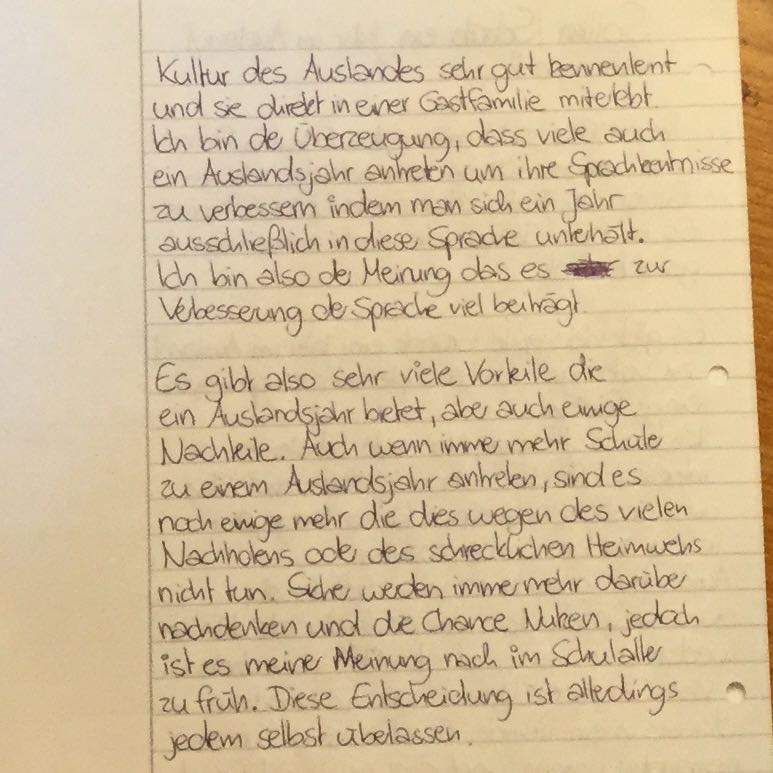 Kultur des Auslandes sehr gut kennenlernt
und sie direkt in einer Gastfamilie miterlebt.
Ich bin der Überzeugung, dass viele auch
ein Auslandsjahr antreten um ihre Sprachkentnisse
zu verbessern indem man sich ein Jahr
ausschließlich in diese Sprache unterhält.
Ich bin also der Meinung das es zur
Verbesserung der Sprache viel beiträgt.
Es gibt also sehr viele Vorteile die
ein Auslandsjahr bietet, aber auch einige
Nachteile. Auch wenn immer mehr Schüler
zu einem Auslandsjahr antreten, sind es
noch einige mehr die dies wegen des vielen
Nachholens oder des schrecklichen Heimwehs
nicht tun. Sicher werden immer mehr darüber
nachdenken und die Chance Nutzen, jedoch
ist es meiner Meinung nach im Schulalter
zu früh. Diese Entscheidung ist allerdings
jedem selbst überlassen.